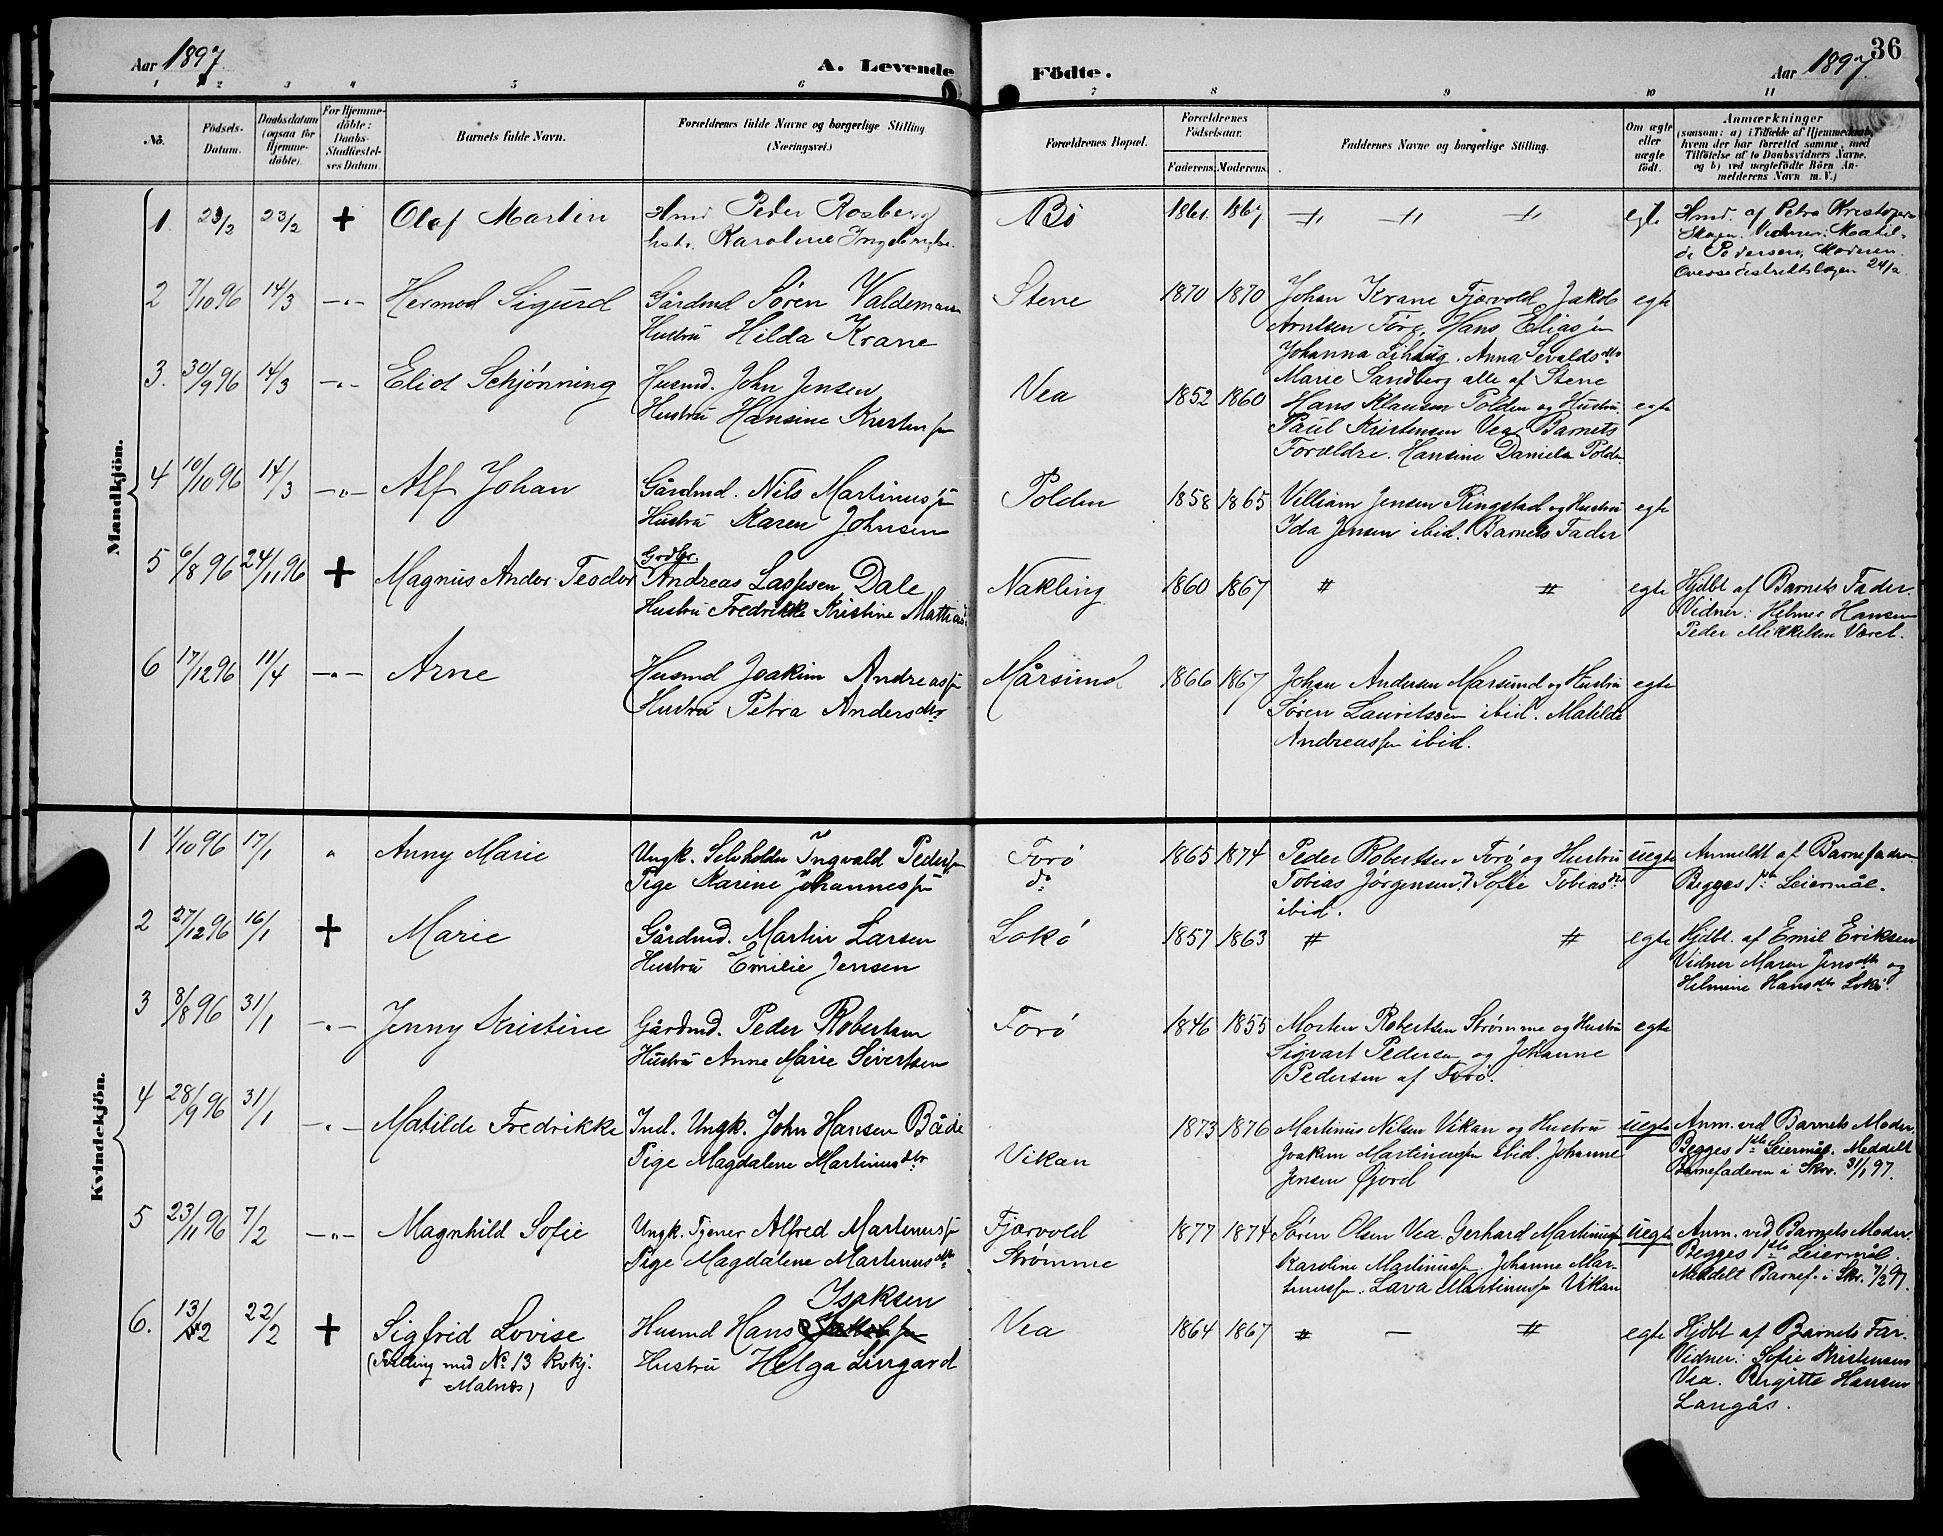 Aar 1897
A. Levende
Födte.
Aar 1897.
36
1 2 3 4 5 6 7 8 9 10 11
No.
Födsels-
Datum.
Daabsdatum
(ogsaa för
Hjemme-
döbte).
For Hjemme-
döbte:
Daabs-
Stadfæstel-
ses Datum.
Barnets fulde Navn.
Forældrenes fulde Navne og borgerlige Stilling
(Næringsvei.)
Forældrenes Bopæl.
Forældrenes
Födselsaar.
Faderens. Moderens.
Faddernes Navne og borgerlige Stilling.
Om ægte
eller
uægte
födt.
Anmærkninger
(saasom: a) i Tilfælde af Hjemmedaab,
hvem der har forrettet samme, med
Tilföielse af to Daabsvidners Navne,
og b) ved uægtefödte Börn An-
melderens Navn m. V.)
Mandkjön.
1. 23/2 23/2 + Olaf Martin
Hmd Peder Rosberg
hstr. Karoline
Bö 1861. 1867 -〃- -〃- -〃- egte
Hmd. af Petra
Skogen. Vidner: Matil-
de Pedersen, Moderen.
24/2.
2 7/10 96 14/3 -〃- Hermod Sigurd
Gårdmd Sören Valdemarsen
Hustru Hilda Krane
Stene 1870 1870
Johan Krane Fjærvold Jakob
Arntsen Forø, Hans Eliasen
Johanna Lihaug. Anna Sevaldsdtr
Marie Sandberg alle af Stene
egte
3. 30/9 96 14/3 -〃- Eliot Schjønning
Husmd. John Jensen
Hustru Hansine Kristensen
Vea 1852 1860
Hans Klausen Polden og Hustru.
Paul Kristensen Vea, Barnets
Forældre. Hansine Daniels Polden
egte
4 10/10 96 14/3 -〃- Alf Johan
Gårdmd. Nils Martinussen
Hustru Karen Johnsen
Polden 1858 1865
Villiam Jensen Ringstad og Hustru
Ida Jensen ibid. Barnets Fader
egte
5 6/8 96 24/11 96 + Magnus Andor Teodor
Grdbr.
Andreas Lassesen Dale
Hustru Fredrikke Kristine
Nakling 1860 1867 〃 〃 egte
Hjdbt af Barnets Fader.
Vidner: Helmer Hansen
Peder Mikkelsen Været.
6 17/12 96 11/4 -〃- Arne
Husmd Joakim Andreassen
Hustru Petra Andersdtr
Mårsund 1866 1867
Johan Andersen Marsund og Hustru
Sören Lauritssen ibid. Matilde
Andreassen ibid.
egte
Kvindekjön.
1 1/10 96 17/1 〃 Anny Marie
Ungk. Selvholder Ingvald Pedersen
Pige Karine Johannessen
Forö
do
1865 1874
Peder Robertsen Forö og Hustru
Tobias Jörgensen, Sofie Tobiasdtr
ibid.
uegte
Anmeldt af Barnefaderen
Begges 1ste Leiermål.
2 27/12 96 16/1 + Marie
Gårdmd. Martin Larsen
Hustru Emilie Jensen
Lokö 1857 1863 〃 〃 egte
Hjdbt. af Emil Eriksen
Vidner Maren Jensdtr og
Helmine Hansdtr Lokö.
3 8/8 96 31/1 -〃- Jenny Kristine
Gårdmd. Peder Robertsen
Hustru Anne Marie Sivertsen
Forö 1846 1855
Morten Robertsen Strømme og Hustru
Sigvart Pedersen og Johanne
Pedersen af Forö.
egte
4 28/9 96 31/1 -〃- Matilde Fredrikke
Ind. Ungk. John Hansen Både
Pige Magdalene Martinusdtr
Vikan
1873 1876
Martinus Nilsen Vikan og Hustru
Joakim Martinussen ibid. Johanne
Jensen Gjord
uegte
Anm. ved Barnets Moder.
Begges 1ste Leiermål. Meddelt
Barnefaderen i Skr. 31/1 97.
5 23/11 96 7/2 -〃- Magnhild Sofie
Ungk. Tjener Alfred Martinussen
Pige Magdalene Martinusdtr
Fjærvold
Strømme
1877 1874
Sören Olsen Vea Gerhard Martinussen
Karoline Martinussen. Johanne Mar-
tinussen. Lava Martinussen Vikan
uegte
Anm. ved Barnets Moder.
Begges 1ste Leiermål.
Meddelt Barnef. i Skr. 7/2 97.
6. 13/2 22/2 + Sigfrid Lovise
(Tvilling med No 13 Kvkj.
Malnes)
Isaksen
Husmd Hans
Hustru Helga Lingard
Vea 1864 1867 〃 - 〃 egte
Hjdbt af Barnets Far.
Vidner: Sofie Kristensen
Vea. Birgitte Hansen
Langås.